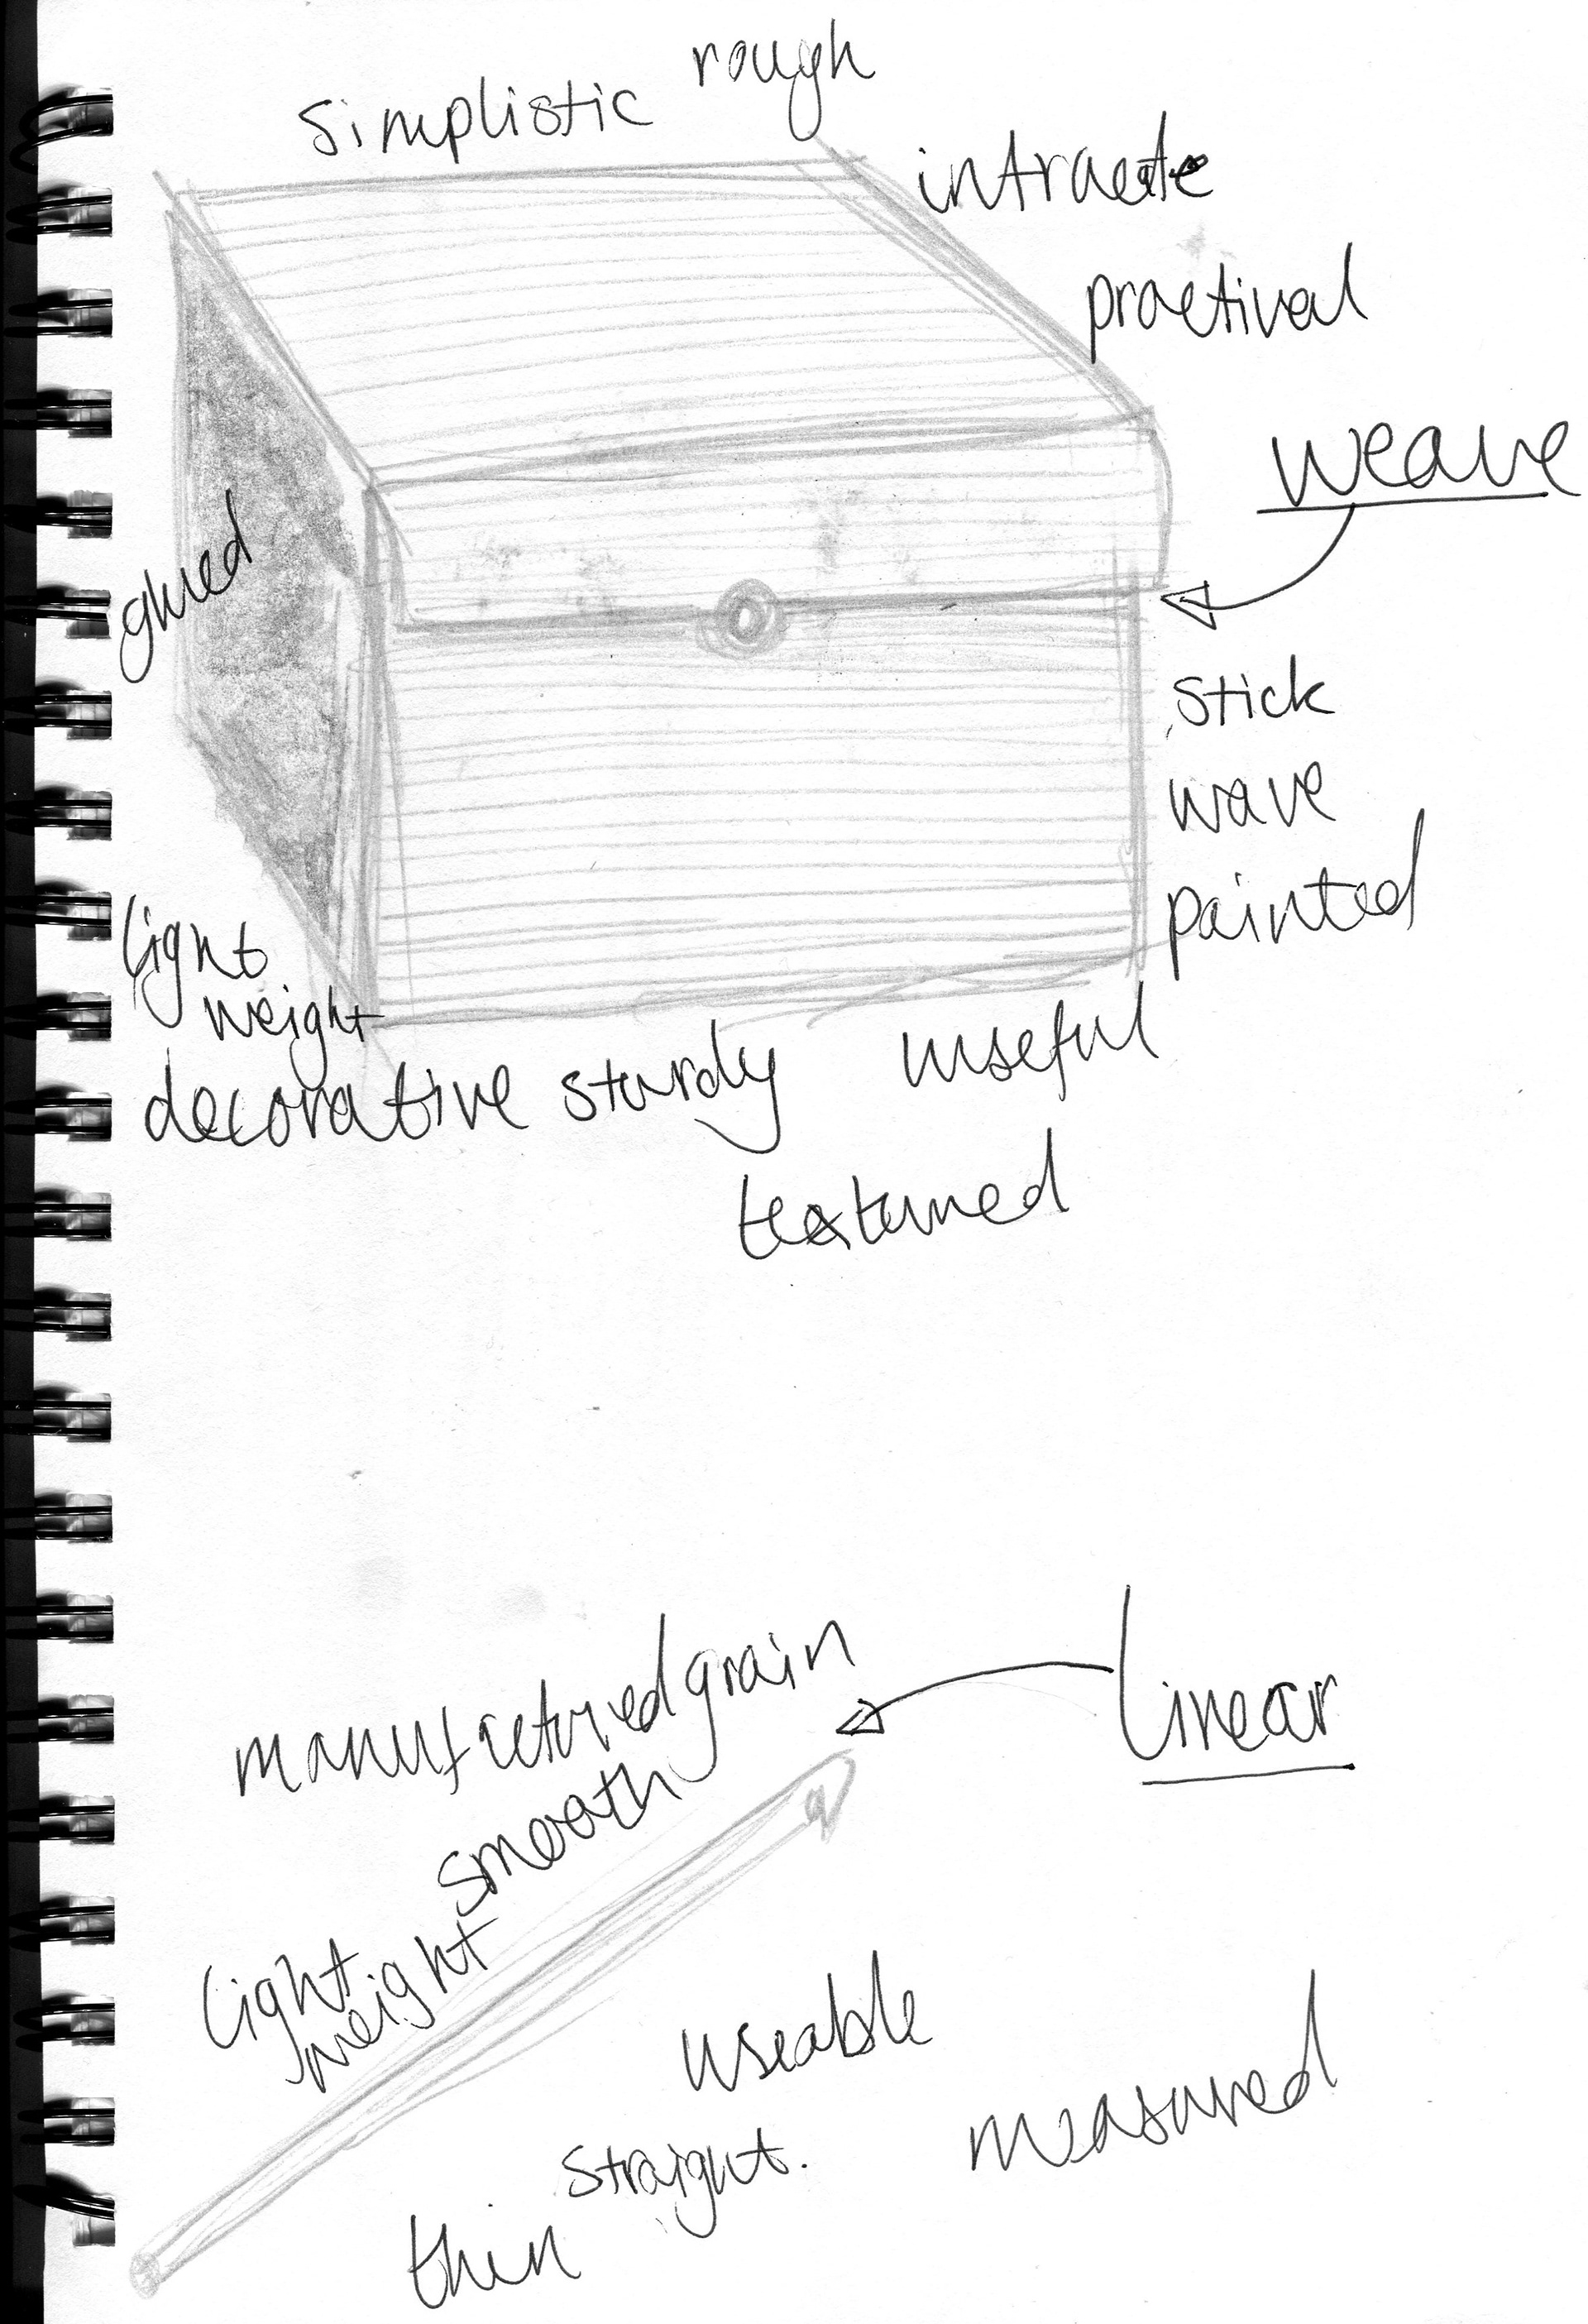 rough
simplistic
intracte
practival
weave
glued
stick
wave
painted
light
weight
decorative sturdy useful
textured
manufactured grain
linear
smooth
light
weight
useable
measured
straight.
thin